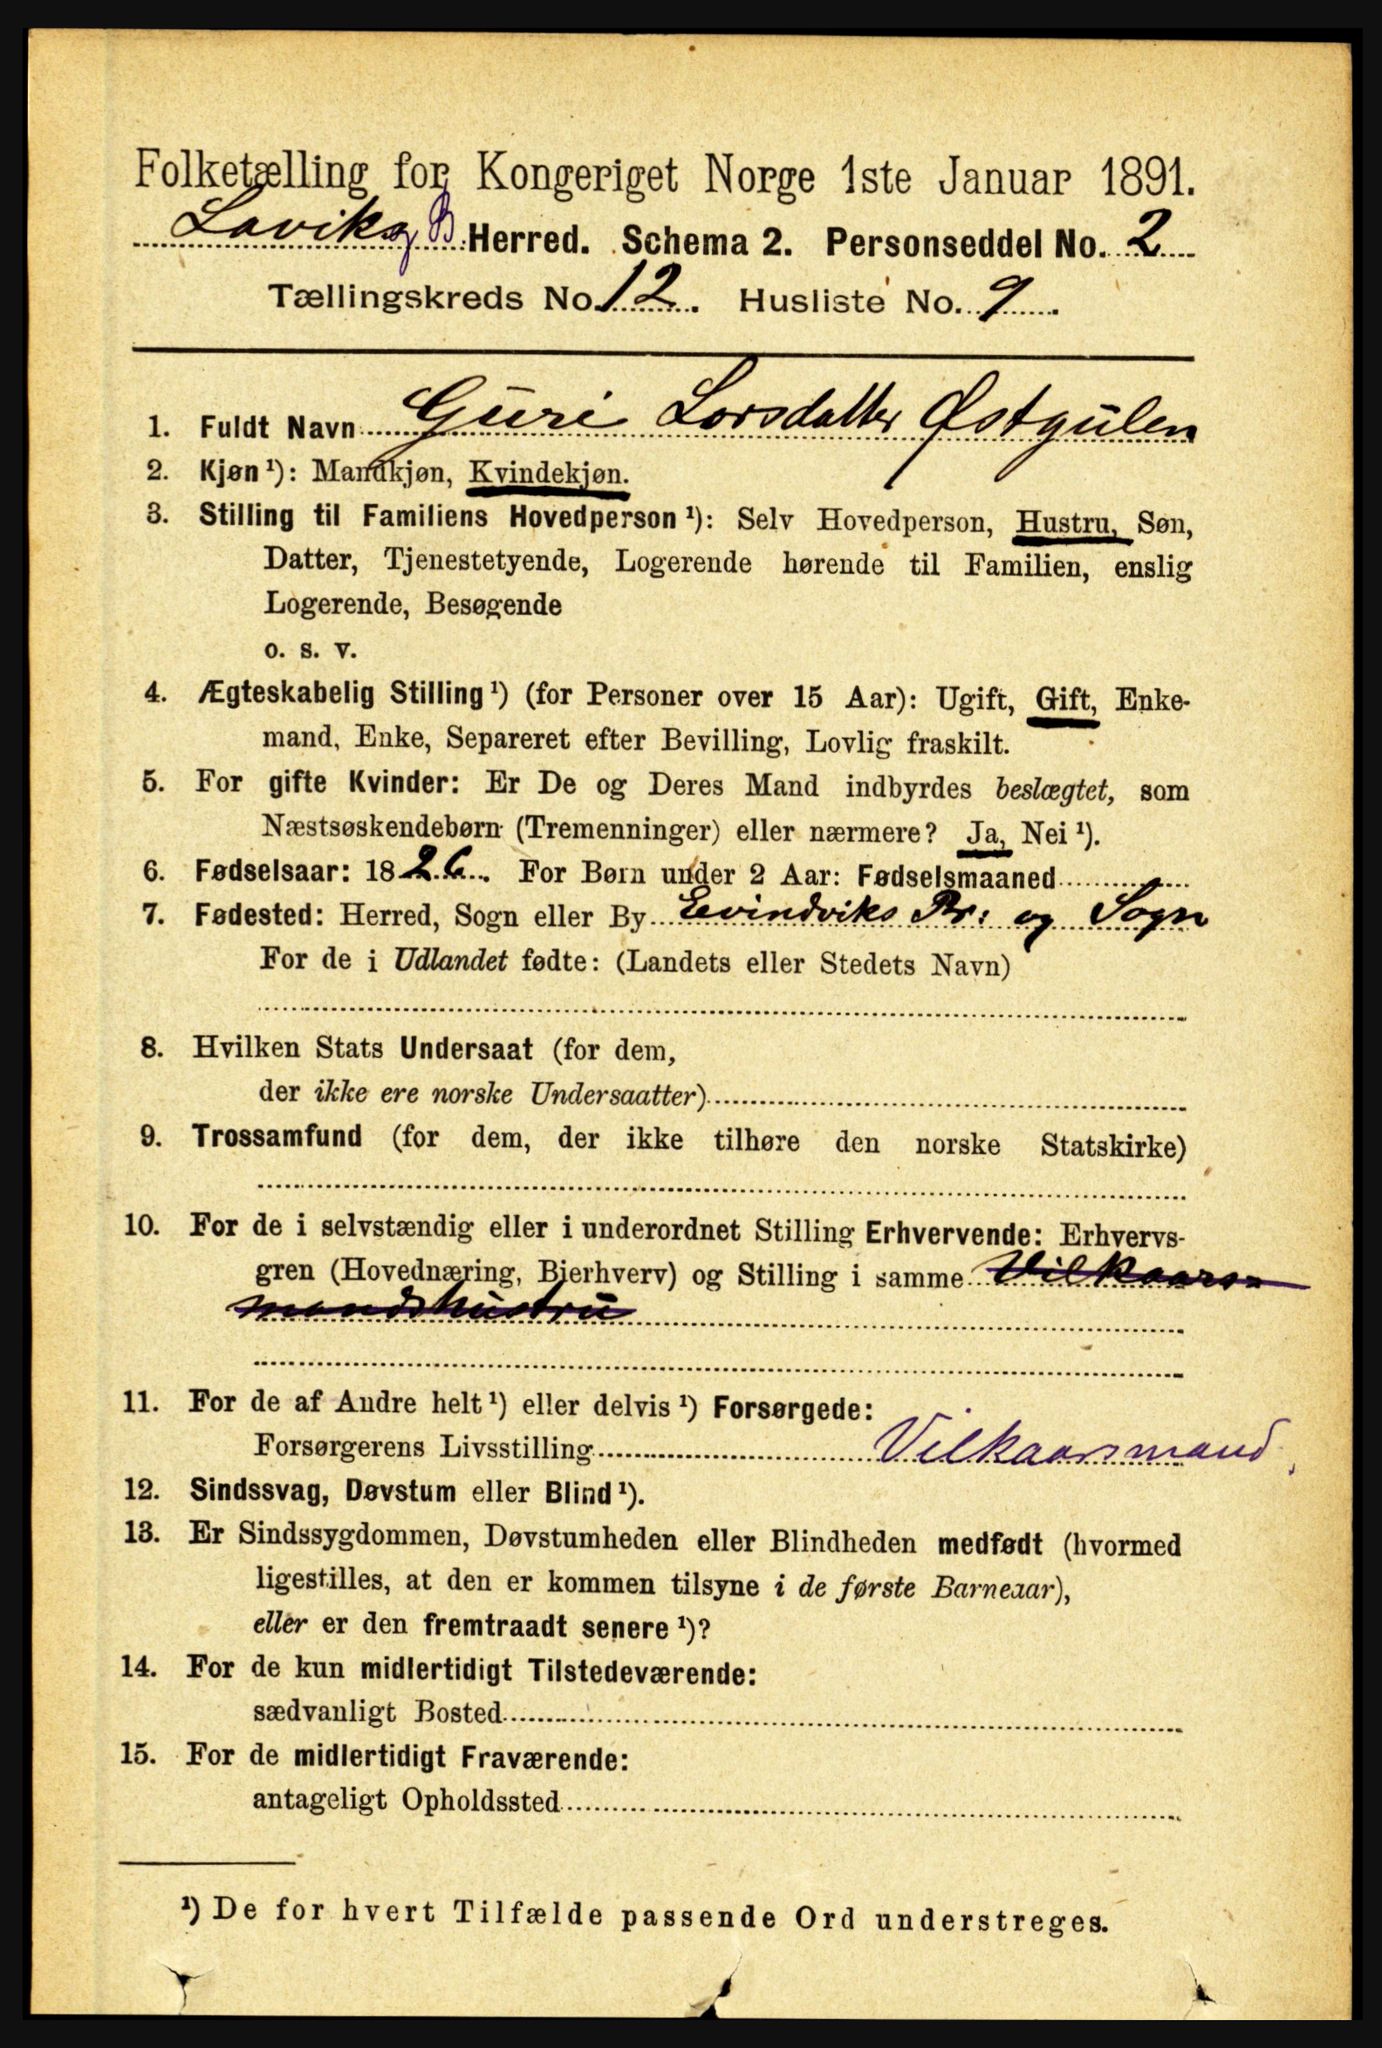 Folketælling for Kongeriget Norge 1ste Januar 1891.
Lavik og B Herred. Schema 2. Personseddel No. 2
Tællingskreds No. 12. Husliste No. 9.
1. Fuldt Navn Guri Larsdatter Østgulen
2. Kjøn ¹): Mandkjøn, Kvindekjøn.
3. Stilling til Familiens Hovedperson ¹): Selv Hovedperson, Hustru, Søn,
Datter, Tjenestetyende, Logerende hørende til Familien, enslig
Logerende, Besøgende
o. s. v.
4. Ægteskabelig Stilling ¹) (for Personer over 15 Aar): Ugift, Gift, Enke-
mand, Enke, Separeret efter Bevilling, Lovlig fraskilt.
5. For gifte Kvinder: Er De og Deres Mand indbyrdes beslægtet, som
Næstsøskendebørn (Tremenninger) eller nærmere? Ja, Nei ¹).
6. Fødselsaar: 1826. For Børn under 2 Aar: Fødselsmaaned
7. Fødested: Herred, Sogn eller By Evindviks Pr: og Sogn
For de i Udlandet fødte: (Landets eller Stedets Navn)
8. Hvilken Stats Undersaat (for dem,
der ikke ere norske Undersaatter)
9. Trossamfund (for dem, der ikke tilhøre den norske Statskirke)
10. For de i selvstændig eller i underordnet Stilling Erhvervende: Erhvervs-
gren (Hovednæring, Bierhverv) og Stilling i samme Vilkaars-
mandshustru
11. For de af Andre helt ¹) eller delvis ¹) Forsørgede:
Forsørgerens Livsstilling Vilkaarsmand.
12. Sindssvag, Døvstum eller Blind ¹).
13. Er Sindssygdommen, Døvstumheden eller Blindheden medfødt (hvormed
ligestilles, at den er kommen tilsyne i de første Barneaar),
eller er den fremtraadt senere ¹)?
14. For de kun midlertidigt Tilstedeværende:
sædvanligt Bosted
15. For de midlertidigt Fraværende:
antageligt Opholdssted
¹) De for hvert Tilfælde passende Ord understreges.